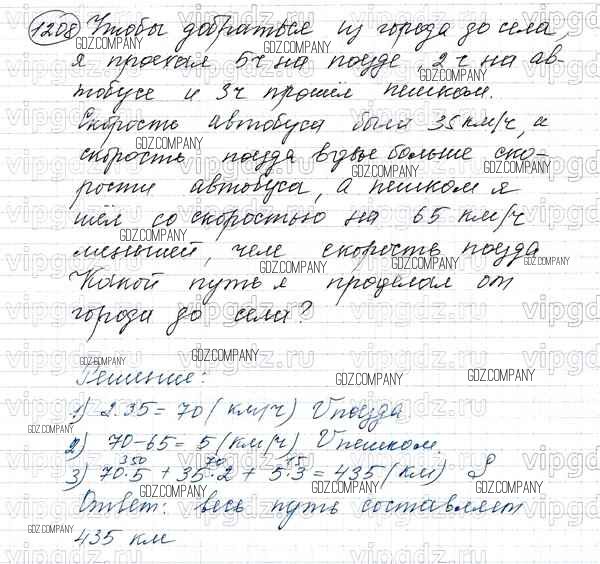 1208 Чтобы добраться из города до села,
я проехал 5ч на поезде, 2 ч на ав-
тобусе и 3ч прошёл пешком.
Скорость автобуса была 35 км/ч, и
скорость поезда вдвое больше ско-
рости автобуса, а пешком я
шёл со скоростью на 65 км/ч
меньшей, чем скорость поезда
Какой путь я проделал от
города до села?
Решение:
1) 2·35 = 70 (км/ч) Vпоезда
2) 70-65 = 5 (км/ч) Vпешком.
350 70 15
3) 70·5 + 35·2 + 5·3 = 435 (км) S
Ответ: весь путь составляет
435 км